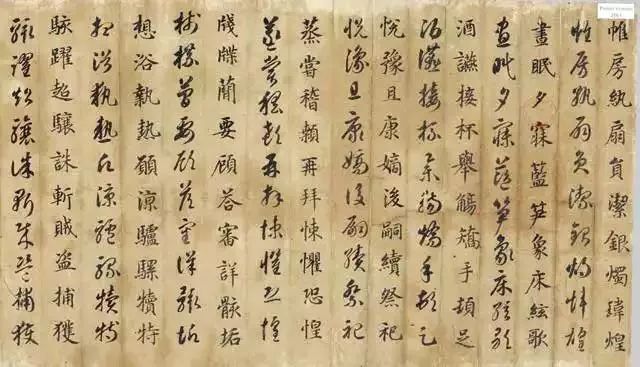 Pelliot chinois
3561
帷房紈扇員潔銀燭煒煌
帷房紈扇員潔銀燭煒煌
晝眠夕寐藍笋象床絃歌
晝眠夕寐藍笋象床絃歌
酒讌接杯舉觴矯手頓足
酒讌接杯舉觴矯手頓足
悅豫且康嫡後嗣續祭祀
悅豫且康嫡後嗣續祭祀
蒸嘗稽顙再拜悚懼恐惶
蒸嘗稽顙再拜悚懼恐惶
牋牒簡要顧答審詳骸垢
牋牒簡要顧答審詳骸垢
想浴執熱願涼驢騾犢特
想浴執熱願涼驢騾犢特
駭躍超驤誅斬賊盜捕獲
駭躍超驤誅斬賊盜捕獲